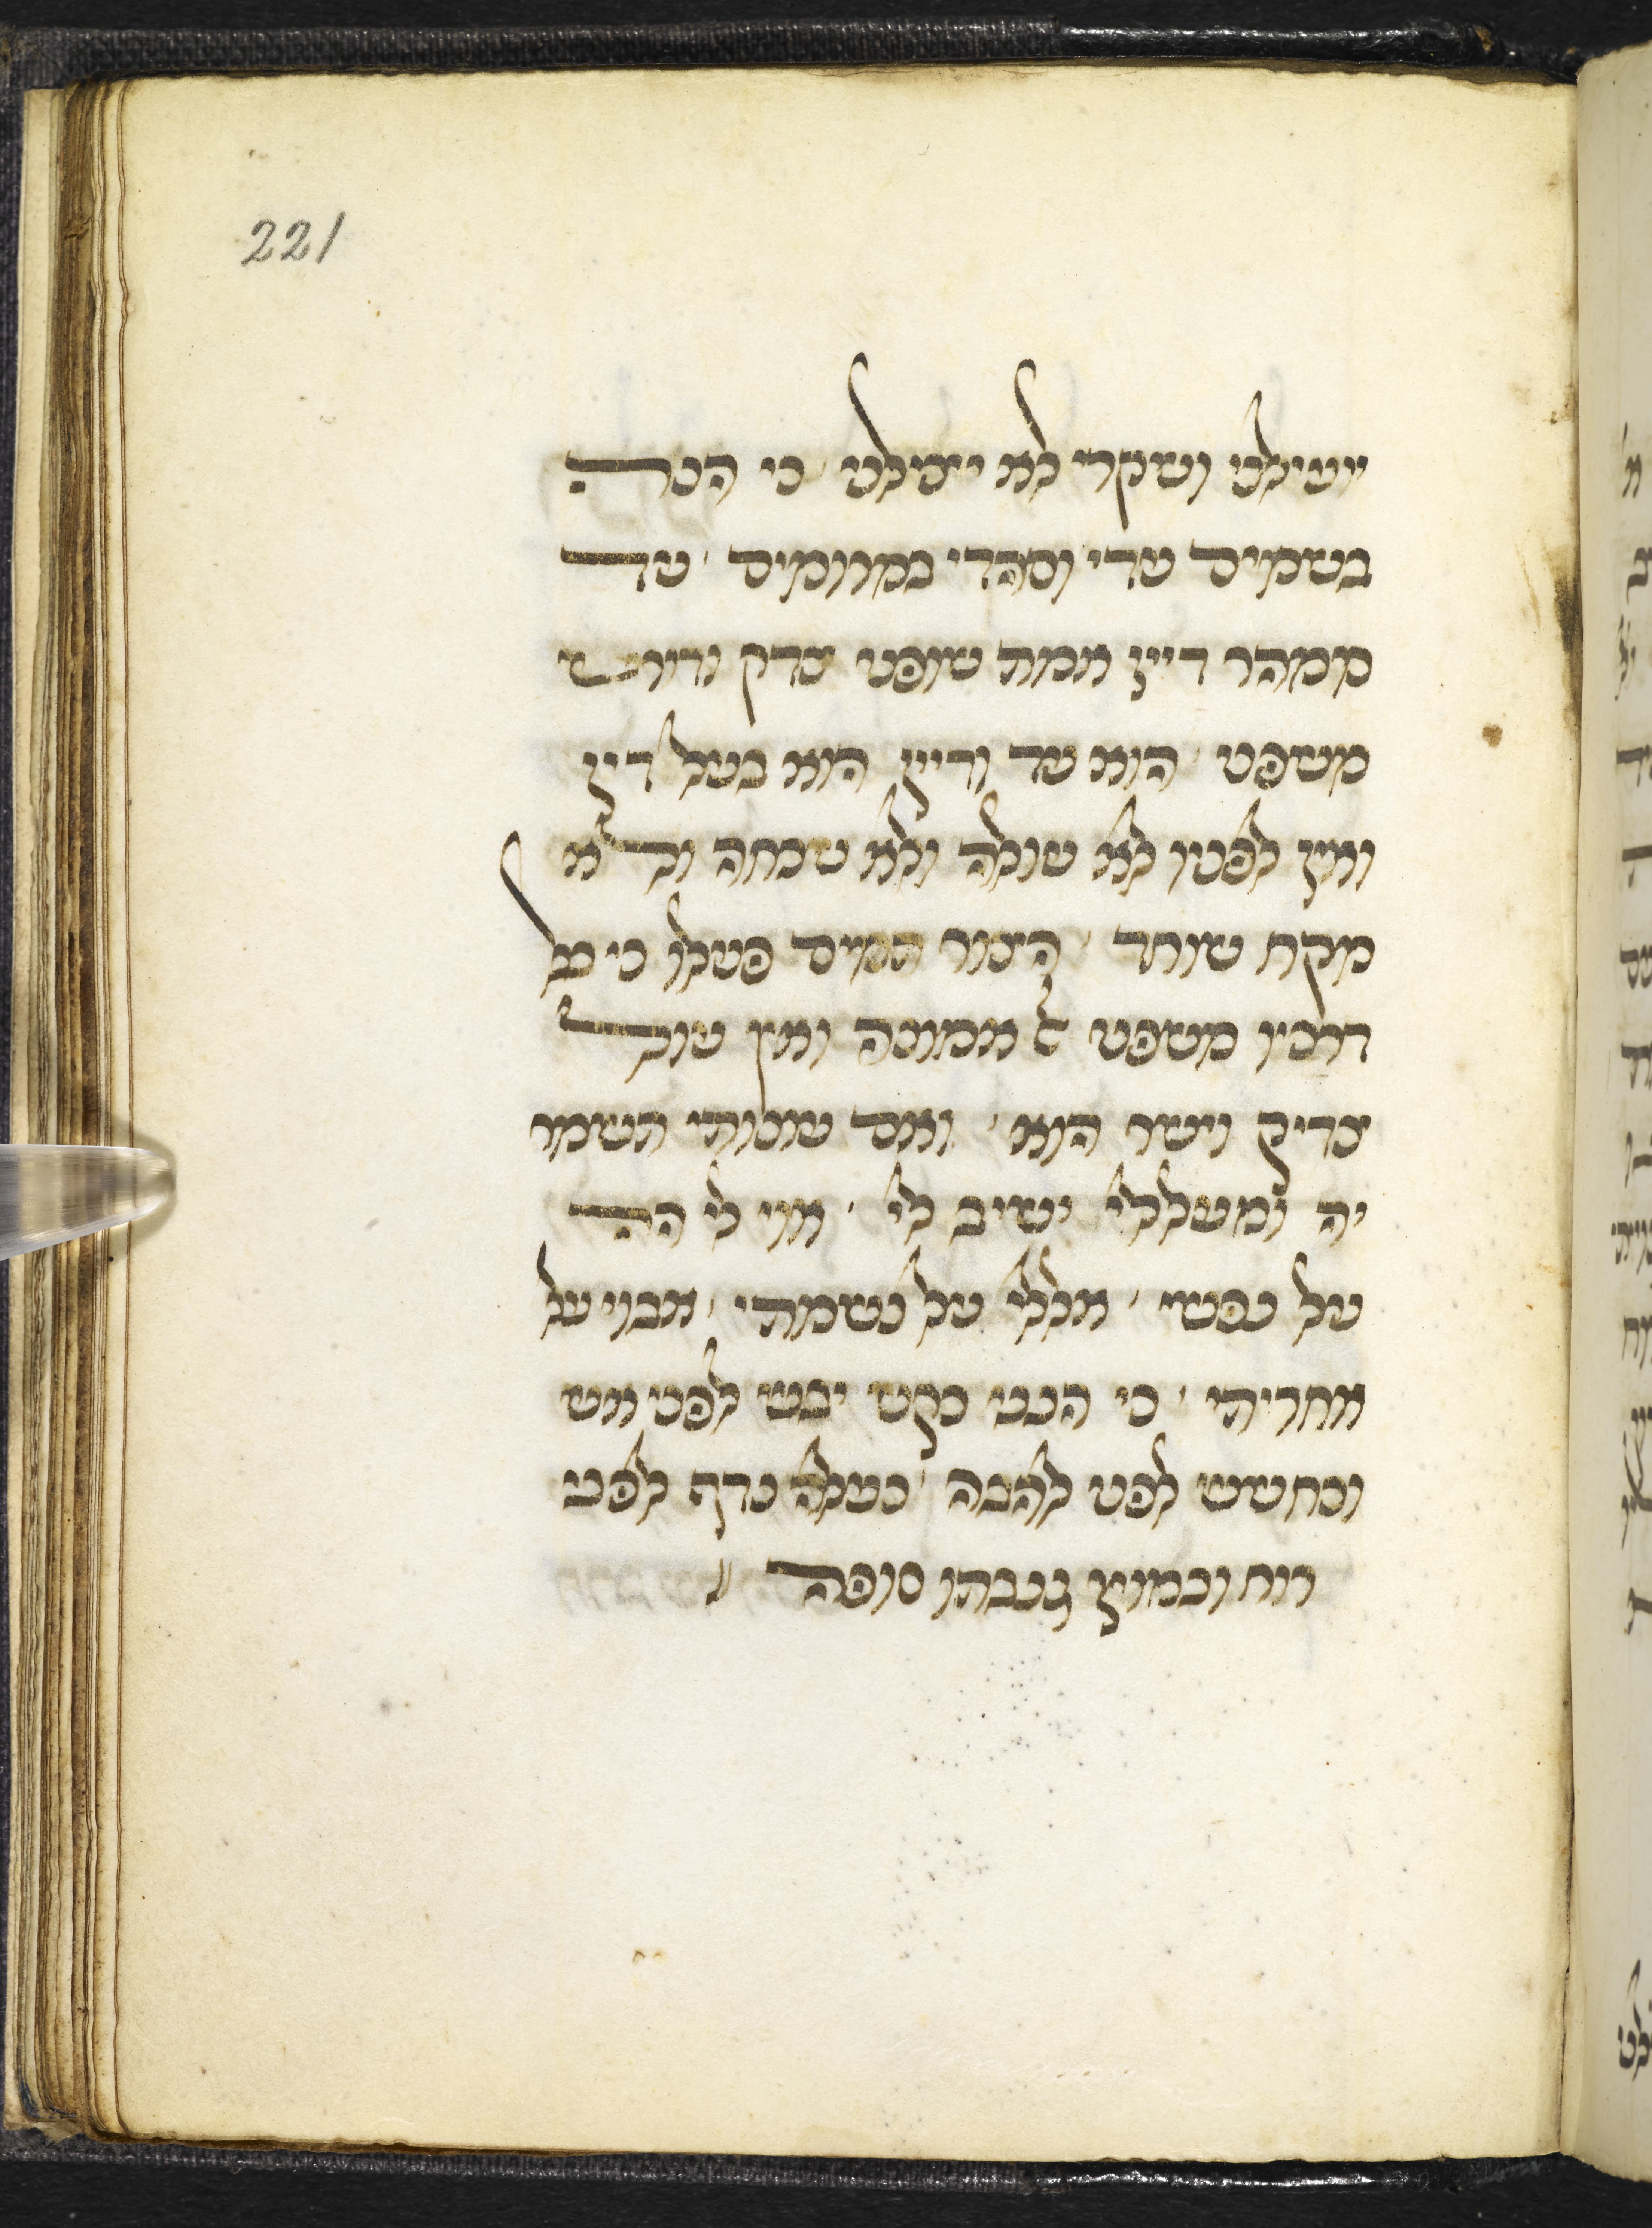 221
יועילני ושקר לא יצילני כי הנה
בשמים עדי וסהדי במרומים עד
ממהר דיין אמת שופט צדק ודורש
משפט הוא עד ודיין הוא בעל דין
ואין לפניו לא עולה ולא שכחה ולא
מקח שוחד הצור תמים פעלו כי כל
דרכיו משפט אל אמונה ואין עול
צדיק וישר הוא ואם עונותי תשמר
יה ומעללי ישיב לי אוי לי הה
על נפשי אללי על נשמתי אבוי על
אחריתי כי הנני כקש יבש לפני אש
וכחשש לפני להבה כעלה נדף לפני
רוח וכמוץ גנבתו סופה